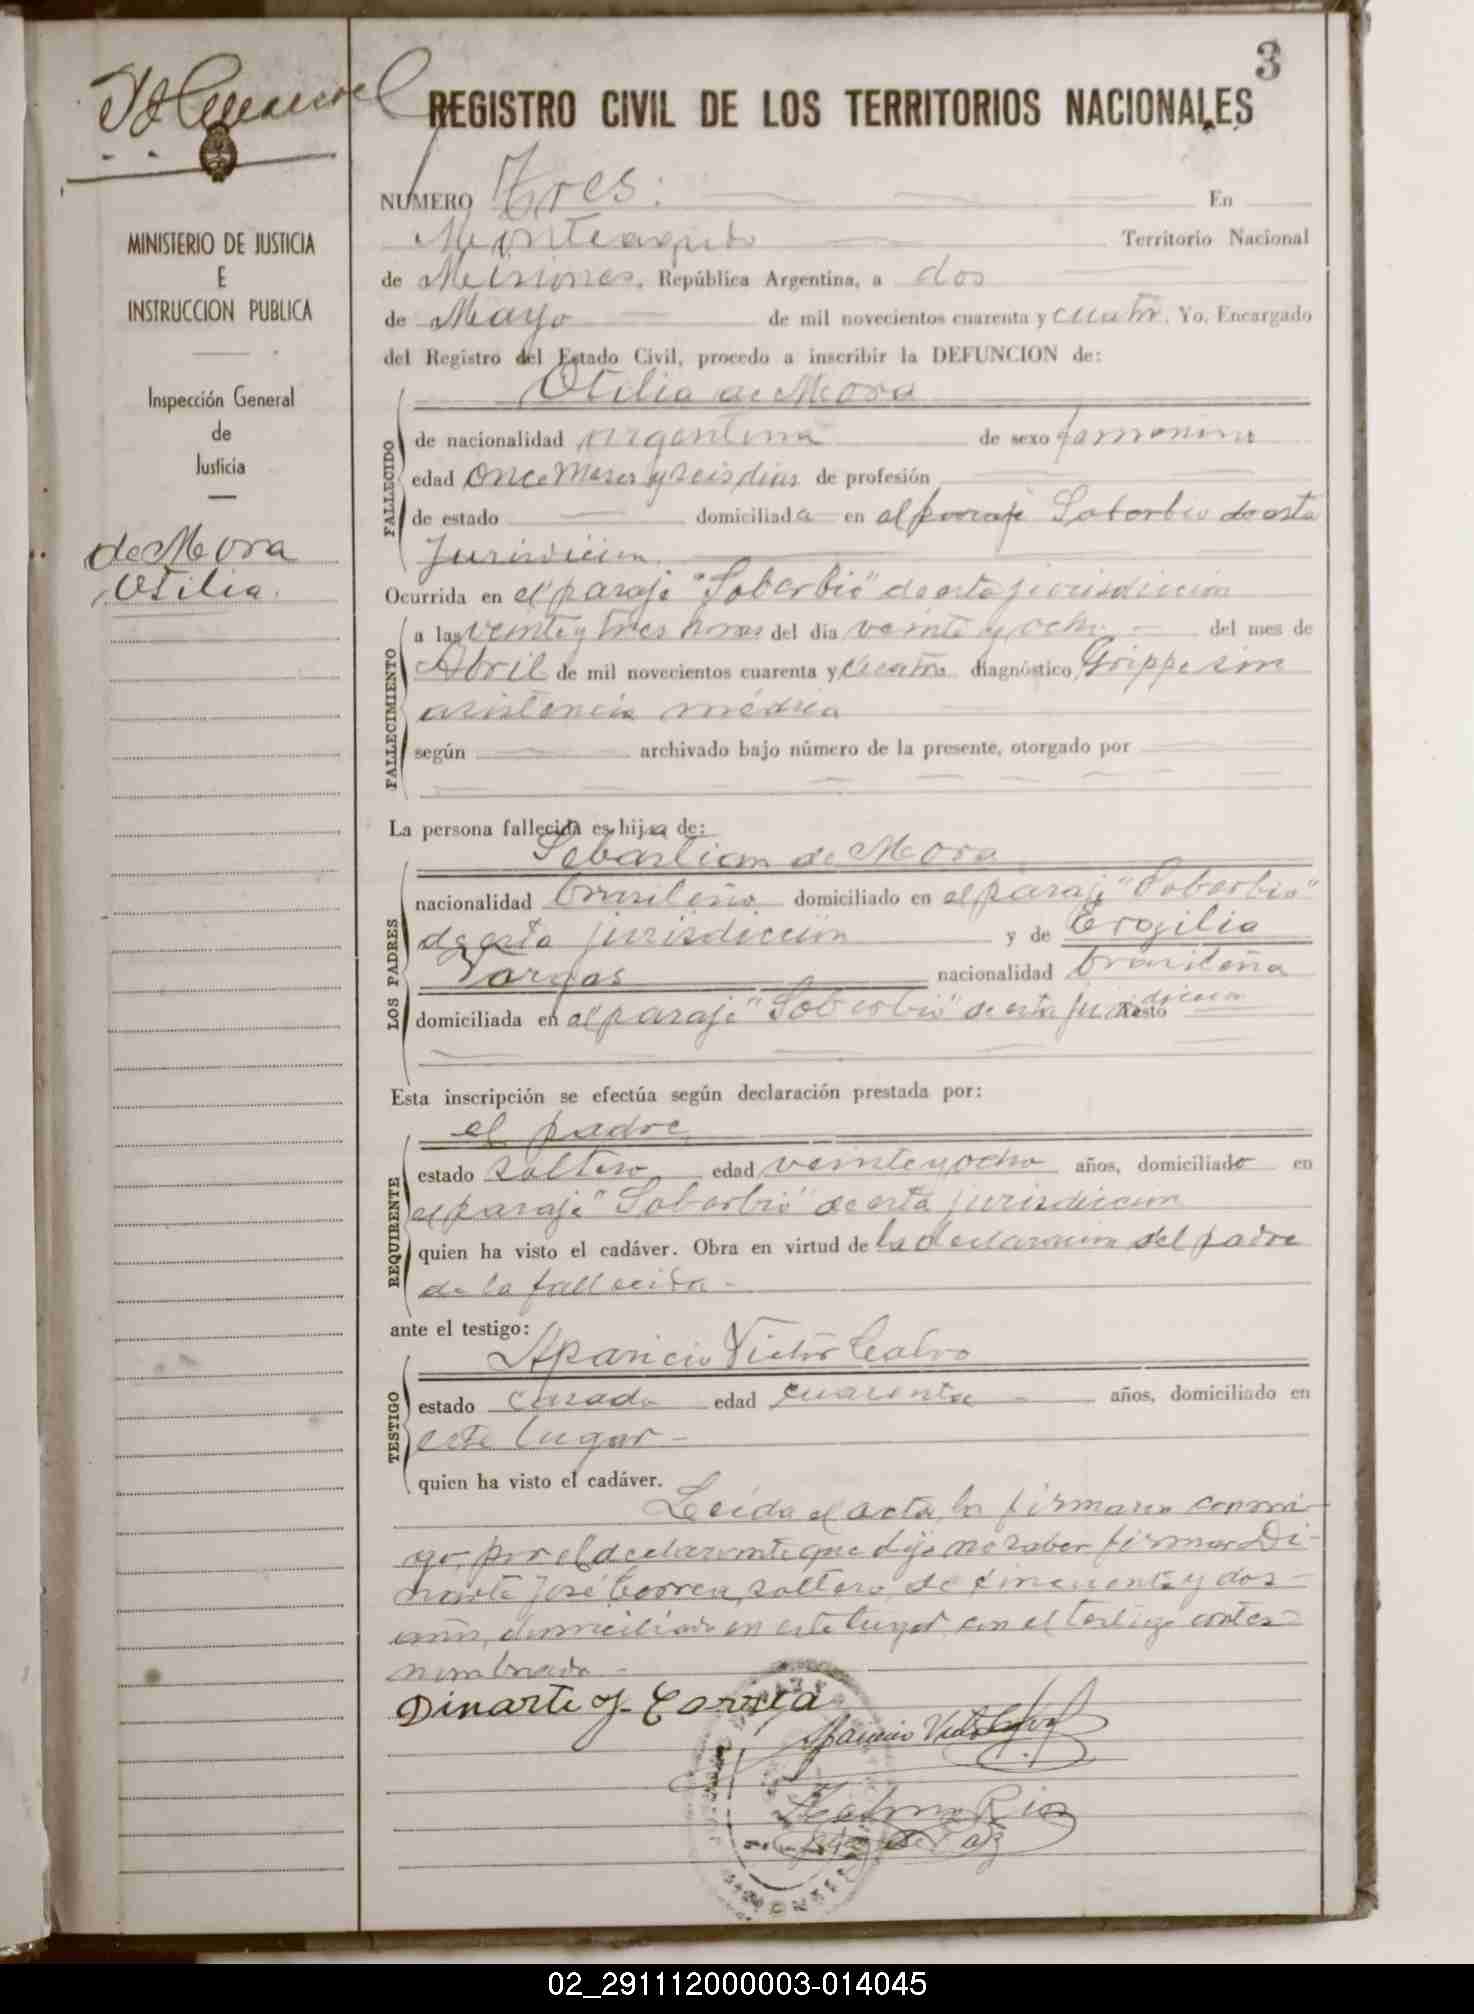 3
REGISTRO CIVIL DE LOS TERRITORIOS NACIONALES
MINISTERIO DE JUSTICIA
E
INSTRUCCION PUBLICA
Inspección General
de
Justicia
de Mora
Otilia
NUMERO Tres: En
Monteagudo Territorio Nacional
de Misiones, República Argentina, a dos
de Mayo de mil novecientos cuarenta y cuatro. Yo, Encargado
del Registro del Estado Civil, procedo a inscribir la DEFUNCION de:
Otilia de Mora
FALLECIDO
de nacionalidad argentina de sexo femenino
edad once meses y seis dias de profesión
de estado domiciliada en el paraje Soberbio de esta
jurisdicion
Ocurrida en el paraje "Soberbio" de esta jurisdicción
FALLECIMIENTO
a las veinte y tres horas del día veinte y ocho del mes de
Abril de mil novecientos cuarenta y cuatro diagnóstico Grippe sin
asistencia médica
según archivado bajo número de la presente, otorgado por
La persona fallecida es hija de:
Sebastian de Mora
LOS PADRES
nacionalidad brasileño domiciliado en el paraje "Soberbio"
de esta jurisdiccion y de Erogilia
Vargas nacionalidad brasileña
domiciliada en el paraje "Soberbio" de esta jurisdicion
Esta inscripción se efectúa según declaración prestada por:
el padre
REQUIRENTE
estado soltero edad veinte y ocho años, domiciliado en
el paraje "Soberbio" de esta jurisdicion
quien ha visto el cadáver. Obra en virtud de la declaracion del padre
de la fallecida -
ante el testigo:
Aparicio Victor Calvo
TESTIGO
estado casado edad cuarenta años, domiciliado en
este lugar -
quien ha visto el cadáver.
Leida el acta, la firmaron conmi-
go, por el declarante que dijo no saber firmar Di-
narte José Correa, soltero, de cincuenta y dos
años, domiciliado en este lugar con el testigo antes
nombrado -
Dinarte J. Correa
Aparicio Victor Calvo
Juez de Paz
02_291112000003-014045